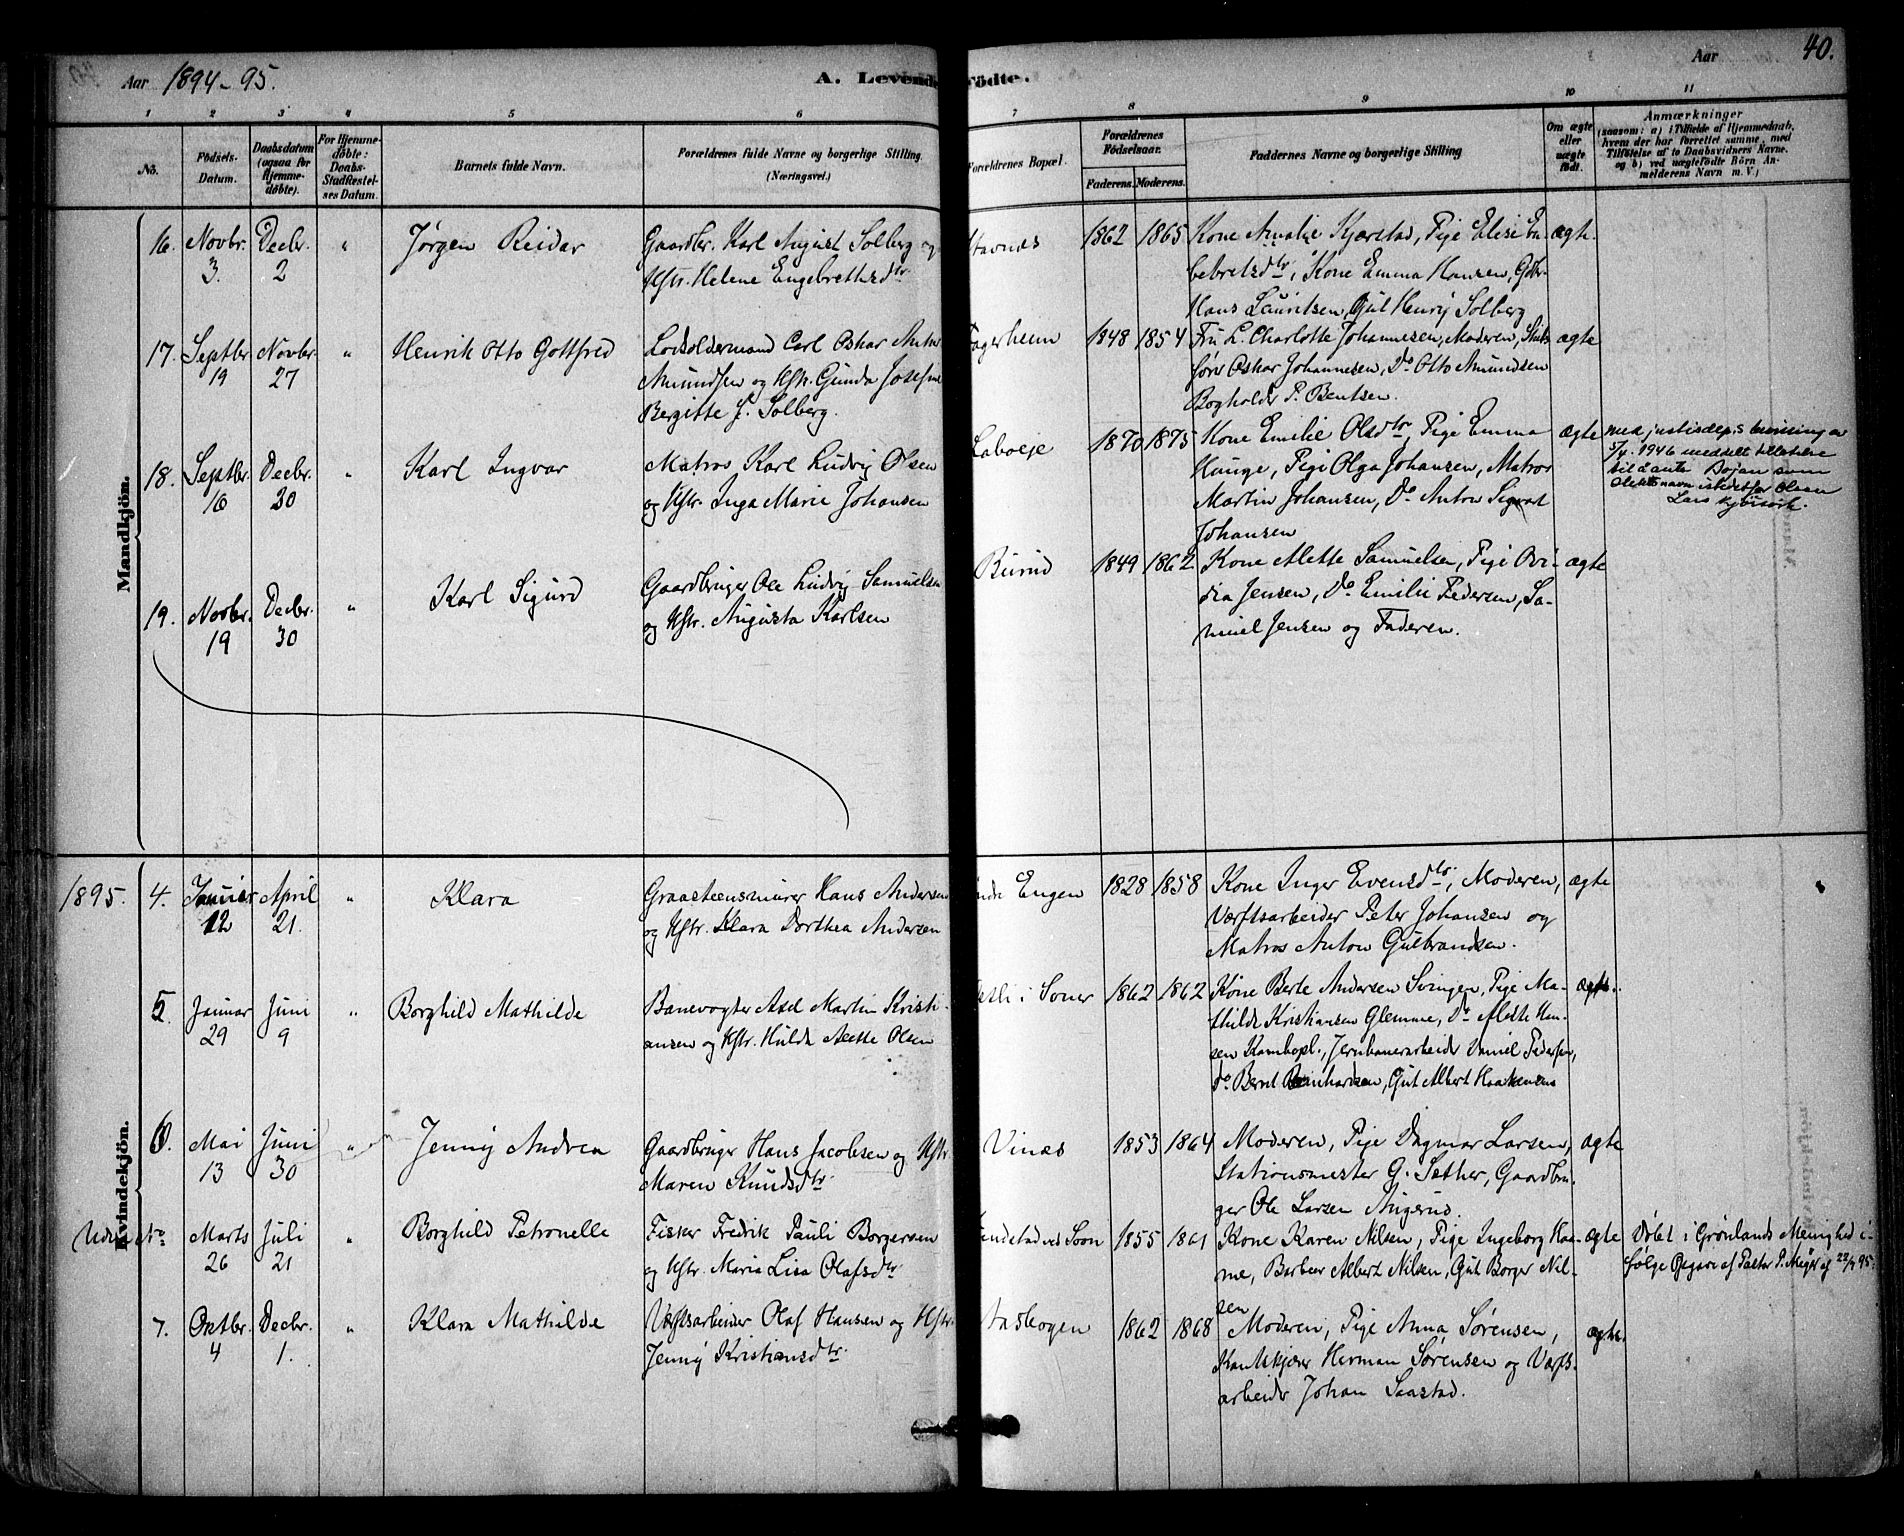 Aar 1894-95.
A. Levende Fødte.
Aar
40.
1 2 3 4 5 6 7 8 9 10 11
No.
Fødsels-Datum.
Daabsdatum (ogsaa for Hjemme-døbte).
For Hjemme-døbte: Daabs-Stadfæstelses Datum.
Barnets fulde Navn.
Forældrenes fulde Navne og borgerlige Stilling. (Næringsvei.)
Forældrenes Bopæl.
Forældrenes Fødselsaar.
Faderens. Moderens.
Faddernes Navne og borgerlige Stilling
Om ægte eller uægte født.
Anmærkninger
(saasom: a) i Tilfælde af Hjemmedaab, hvem der har forrettet samme, med Tilføielse af to Daabsvidners Navne, og b) ved uægtefødte Børn Anmelderens Navn m. V.)
Mandkjøn.
16. Novbr. 3. Decbr. 2 " Jørgen Reidar
Gaardbr. Karl August Solberg og
Hstr. Helene Engebrettsdtr
Stavnæs 1862 1865
Kone Amalie Kjærstad, Pige Elise En-
bebretsdtr, Kone Emma Hansen, Gdbr.
Hans Lauritsen, Gut Henry Solberg
ægte
17. Septbr 19 Novbr. 27 " Henrik Otto Gottfred
Lodsoldermand Carl Oskar Anton
Amundsen og Hstr. Gunda Josefine
Bergitte f. Solberg.
Fagerheim 1848 1854
Fru L. Charlotte Johannesen, Moderen, Skibs-
fører Oskar Johannesen, Do Otto Amundsen
Bogholder P. Bentsen.
ægte
18. Septbr. 16 Decbr. 30 " Karl Ingvar
Matros Karl Ludvig Olsen
og Hstr. Inga Marie Johansen
Labveje 1870 1875
Kone Emilie Olsdtr, Pige Emma
Hauge, Pige Olga Johansen, Matros
Martin Johansen, Do Anton Sigvat
Johansen
ægte
Med justisdep.s bevilling av
5/4. 1946 meddelt tillatelse
til å anta Bojan som
slektsnavn istedetfor Olsen
19. Novbr. 19 Decbr. 30 " Karl Sigurd
Gaardbruger Ole Ludvig Samuelsen
og Hstr. Augusta Karlsen
Burud 1849 1862
Kone Alette Samuelsen, Pige Ovi-
dia Jensen, Do Emilie Pedersen, Sa-
muel Jensen og Faderen.
ægte
Kvindekjøn.
1895. 4. Januar 12 April 21. " Klara
Graasteensmurer Hans Andersen
og Hstr. Klara Dorthea Andersen
Engen 1828 1858
Kone Inger Evensdtr, Moderen,
Værftsarbeider Peter Johansen og
Matros Anton Gulbrandsen.
ægte
5. Januar 29 Juni 9 " Borghild Mathilde
Banevogter Axel Martin Kristi-
ansen og Hstr. Hulda Alette Olsen
i Soner 1862 1862
Kone Berte Andersen Svingen, Pige Ma-
thilde Kristiansen Glemme, Do Alette Han-
sen Kambopl., Jernbanearbeider Daniel Pedersen,
do Bernt Bernhardsen, Gut Albert Haakensen
ægte.
6. Mai 13 Juni 30 " Jenny Andrea
Gaardbruger Hans Jacobsen og Hstr.
Maren Knudsdtr.
Vinæs 1853 1864
Moderen, Pige Dagmar Larsen,
Stationsmester G. Sæther, Gaardbru-
ger Ole Larsen Angerud.
ægte
Uden No Marts 26 Juli 21 " Borghild Petronelle
Fisker Fredrik Pauli Borgersen
og Hstr. Maria Lisa Olafsdtr
ved Soon 1855 1861
Kone Karen Nilsen, Pige Ingeborg Haa-
me, Barbeer Albert Nilsen, Gut Borger Nil-
sen
ægte
Døbt i Grønlands Menighed i-
følge Begjæring af Pastor P. af 22/7 95.
7. Oktbr. 4 Decbr. 1. " Klara Mathilde
Værftsarbeider Olaf Hansen og Hstr.
Jenny Kristiansdtr.
Aasbogen 1862 1868
Moderen, Pige Anna Sørensen,
Kantskjærer Herman Sørensen og Værfts-
arbeider Johan Saastad.
ægte.